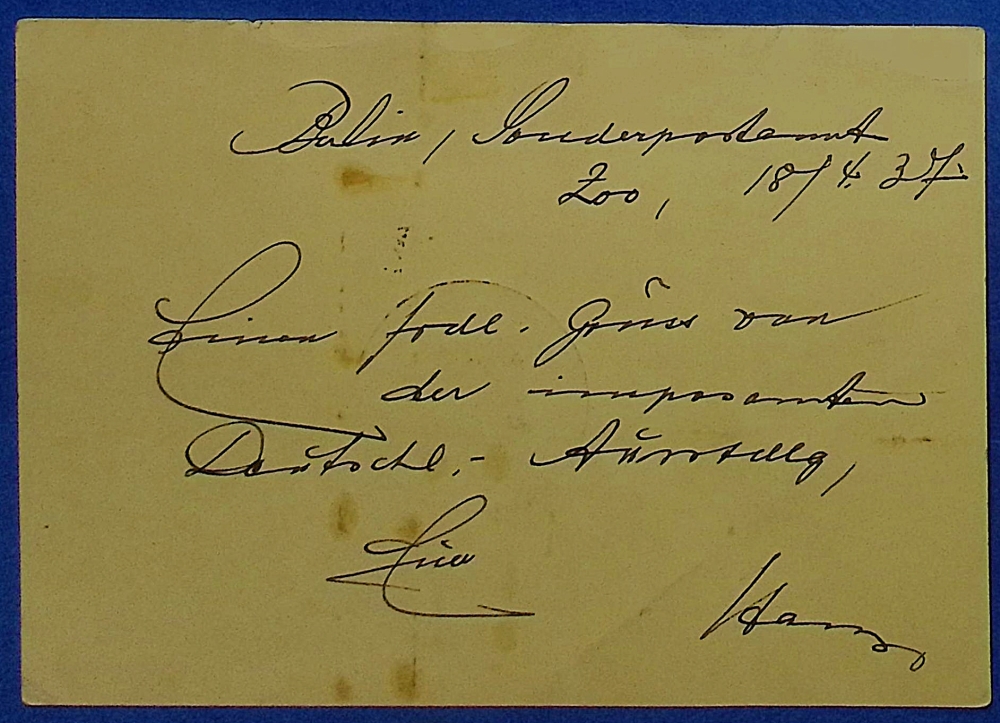 Berlin, Sonderpostamt
Zoo, 18/4. 37.
Einen frdl. Gruss von
der imposanten
Deutschl.- Ausstellg,
Hans